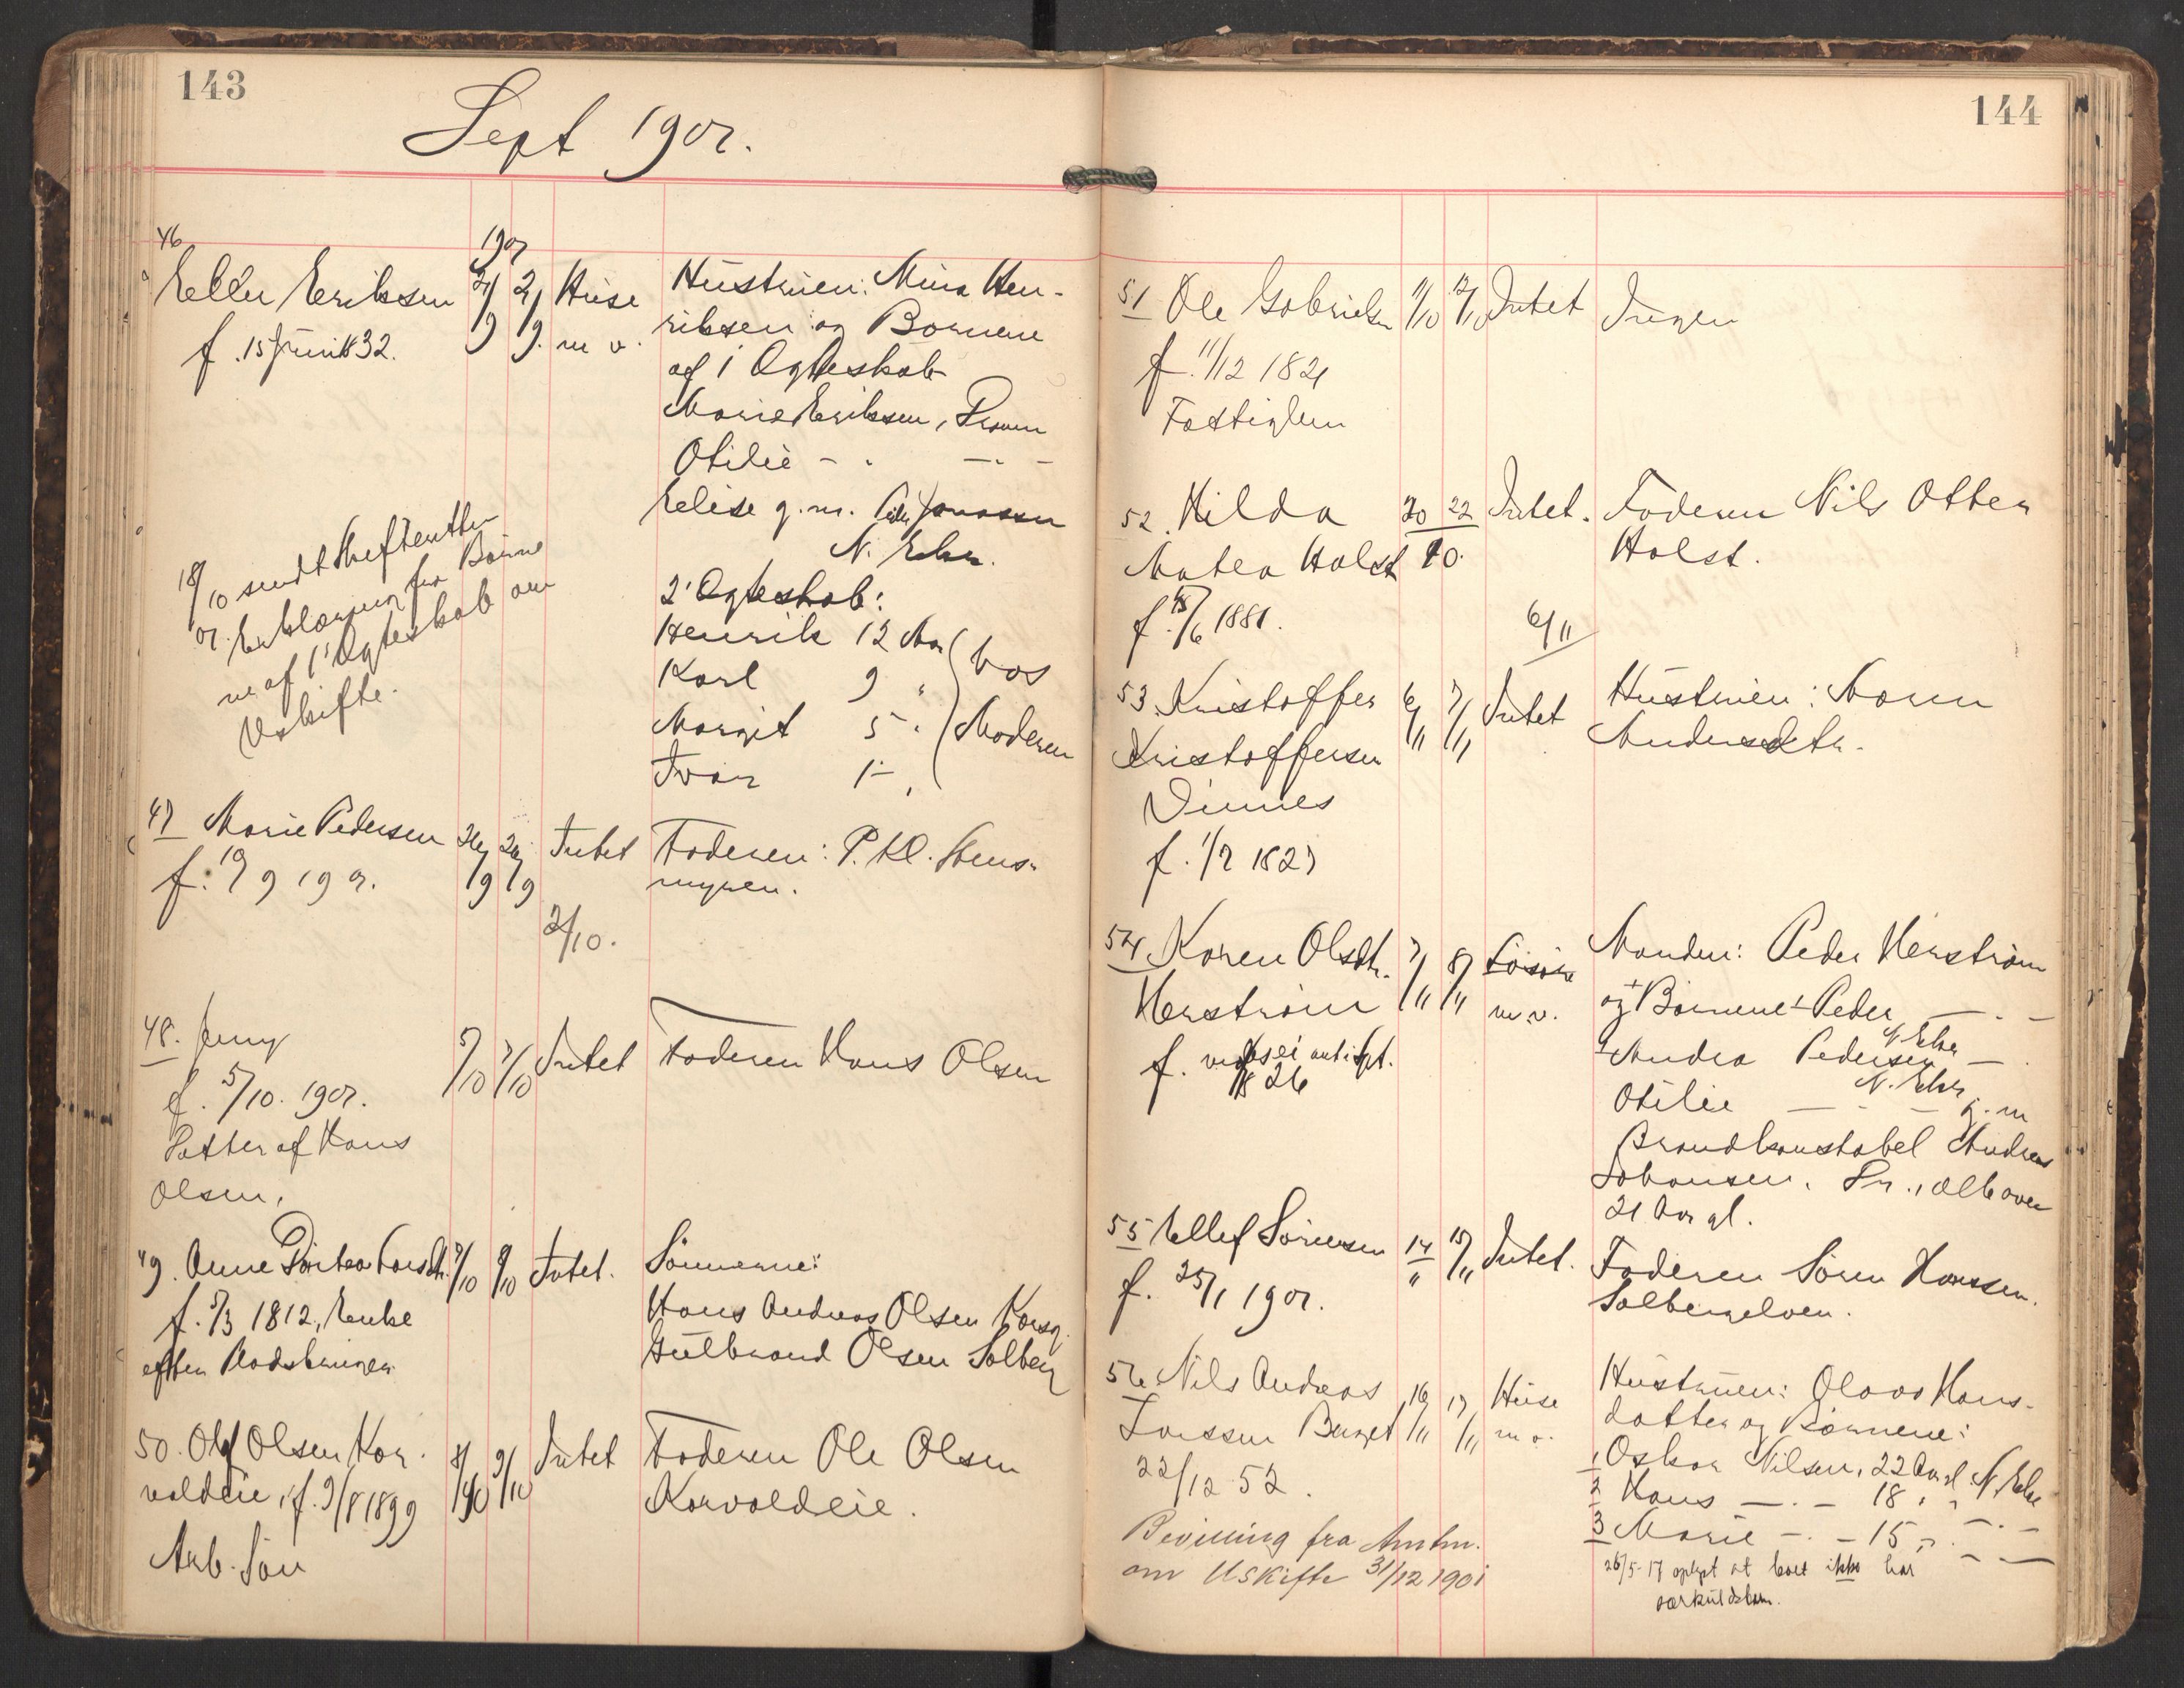 143
Sept 1901.
46
1901
Eller Eriksen 2/9 2/9. Huse m v.
f. 15 Juni 1832.
Hustruen: Mina Hen-
riksen og Børnene
af 1 Ægteskab
Marie Eriksen, Drammen
Otilie - " - " -
Elise g. m. Peder Jonassen
N. Eker.
2' Ægteskab:
Henrik 12 Aar
Karl 9 "
Margit 5 "
Ivar 1 - "
hos
Moderen
18/10 01. sendt Skifteretten
Erklæring fra Børne
ne af 1' Ægteskab om
Uskifte.
47 Marie Pedersen 26/9 26/9 Intet
f. 19/9 1901.
Faderen: P. Kl. Stens-
myren.
2/10.
48. Jenny 5/10 7/10 Intet Faderen Hans Olsen
f. 5/10. 1901.
Datter af Hans
Olsen.
49. Anne Dortea Larsdtr. 7/10 9/10 Intet.
f. 5/3 1812, Enke
efter
Sønnerne:
Hans Andreas Olsen
Gulbrand Olsen Solberg
50. Olaf Olsen Kor-
voldeie, f. 9/8 1899
Arb. Søn
8/10 9/10 Intet Faderen Ole Olsen
Korvoldeie.
144
51 Ole Gabrielsen 11/10 12/10 Intet Ingen
f. 11/12 1821
Fattiglem
52. Hilda 20 22 Intet. Faderen Nils Otter
Matea Holst 10. Holst.
f. 18/6 1881.
6/11
53. Kristoffer 6/11 7/11 Intet Hustruen: Maren
Kristoffersen Andersdtr.
Vinnes
f. 1/7 1827
54 Karen Olsdtr. 7/11 8/11 Løsøre
Herstrøm m. v.
f. 1826
Manden: Peder Herstrøm
og Børnene 1 Peder - " -
N. Eker
2 Andrea Pedersen -
N. Eker
Otilie - " - g. m
Brandkonstabel Andreas
Johansen, Dr., alle over
21 Aar gl.
55 Ellef Sørensen 14/11 15/11 Intet.
f. 25/1 1901.
Faderen Søren Hanssen.
Solbergelven.
56 Nils Andreas 16/11 17/11 Huse
Larssen Berget m v.
22/12 52.
Hustruen: Olava Hans-
datter og Børnene:
1 Oskar Nilsen, 22 Aar gl. N. Eker
2 Hans - " - 18 " " - " -
3 Marie - " - 15 " " - " -
Bevilling fra Amtm.
om Uskifte 31/12 1901
26/5-17 oplyst at boet ikke har
særkuldsbarn.